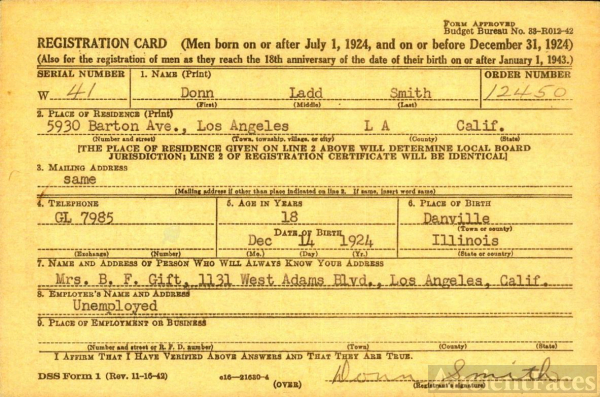 FORM APPROVED
Budget Bureau No. 33-R012-42
REGISTRATION CARD (Men born on or after July 1, 1924, and on or before December 31, 1924)
(Also for the registration of men as they reach the 18th anniversary of the date of their birth on or after January 1, 1943.)
SERIAL NUMBER 1. NAME (Print) ORDER NUMBER
W 41 Donn Ladd Smith 12450
(First) (Middle) (Last)
2. PLACE OF RESIDENCE (Print)
5930 Barton Ave., Los Angeles L A Calif.
(Number and street) (Town, township, village, or city) (County) (State)
[THE PLACE OF RESIDENCE GIVEN ON LINE 2 ABOVE WILL DETERMINE LOCAL BOARD
JURISDICTION; LINE 2 OF REGISTRATION CERTIFICATE WILL BE IDENTICAL]
3. MAILING ADDRESS
same
(Mailing address if other than place indicated on line 2. If same, insert word same)
4. TELEPHONE 5. AGE IN YEARS 6. PLACE OF BIRTH
GL 7985 18 Danville
DATE OF BIRTH (Town or county)
Dec 14 1924 Illinois
(Exchange) (Number) (Mo.) (Day) (Yr.) (State or country)
7. NAME AND ADDRESS OF PERSON WHO WILL ALWAYS KNOW YOUR ADDRESS
Mrs. B. F. Gift, 1131 West Adams Blvd., Los Angeles, Calif.
8. EMPLOYER'S NAME AND ADDRESS
Unemployed
9. PLACE OF EMPLOYMENT OR BUSINESS
(Number and street or R. F. D. number) (Town) (County) (State)
I AFFIRM THAT I HAVE VERIFIED ABOVE ANSWERS AND THAT THEY ARE TRUE.
DSS Form 1 (Rev. 11-16-42) c16-21630-4 Donn Smith
(OVER) (Registrant's signature)
Ancientfaces